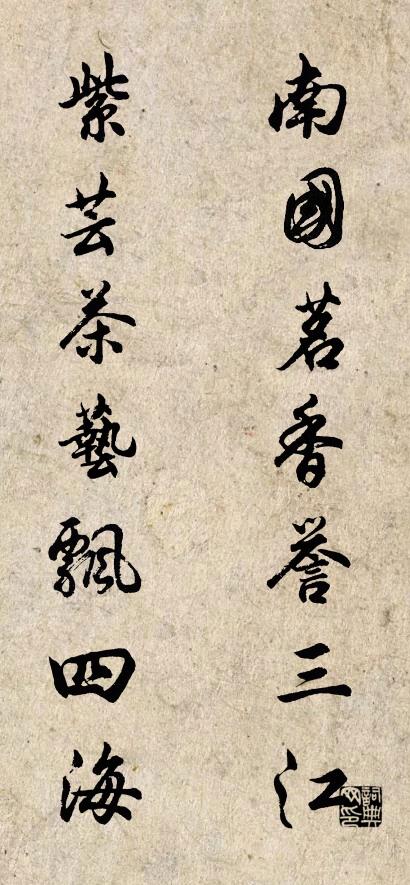 南國茗香譽三江
紫芸茶藝飄四海
詞典網印